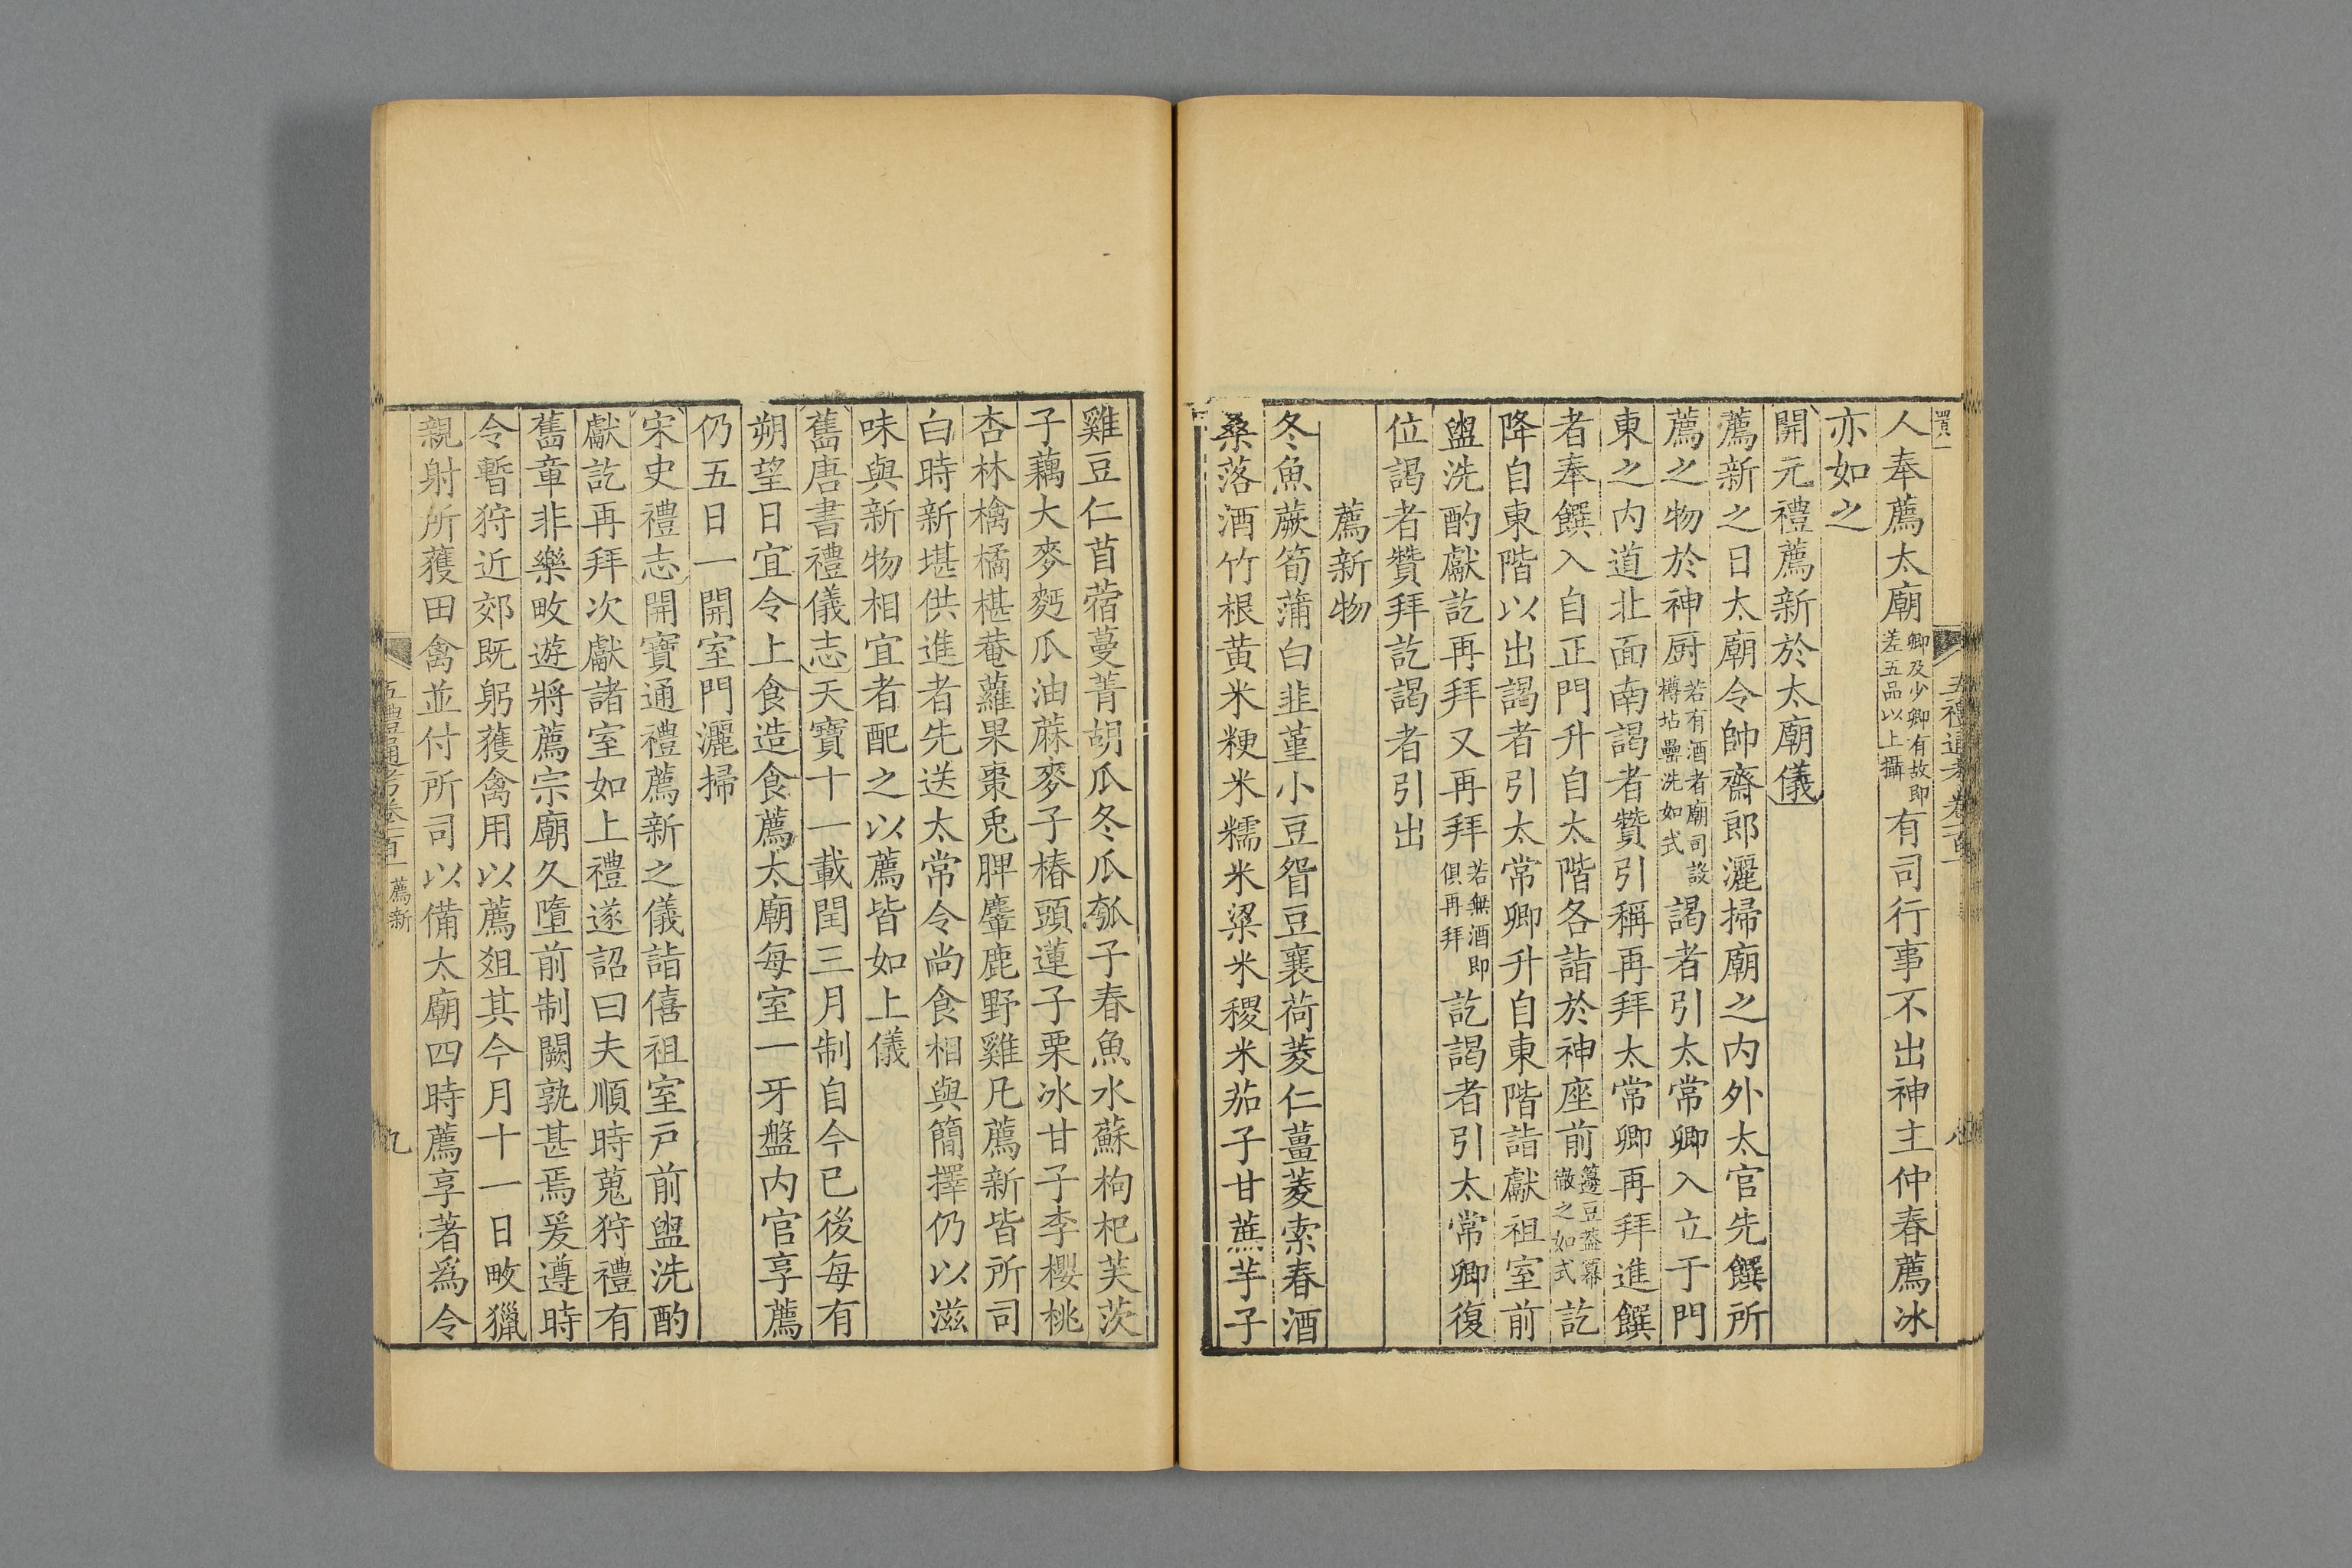 人奉薦太廟卿及少卿有故即差五品以上攝有司行事不出神主仲春薦冰
亦如之
開元禮薦新於太廟儀
薦新之日太廟令帥齋郎灑掃廟之内外太官先饌所
薦之物於神厨若有酒者廟司設樽坫罍洗如式謁者引太常卿入立于門
東之内道北面南謁者贊引稱再拜太常卿再拜進饌
者奉饌入自正門升自太階各詣於神座前籩豆蓋冪徹之如式訖
降自東階以出謁者引太常卿升自東階詣獻祖室前
盥洗酌獻訖再拜又再拜若無酒即俱再拜訖謁者引太常卿復
位謁者贊拜訖謁者引出
薦新物
冬魚蕨筍蒲白韭堇小豆眢豆蘘荷菱仁薑菱索春酒
桑落酒竹根黄米粳米糯米粱米稷米茄子甘蔗芋子
雞豆仁苜蓿蔓菁胡瓜冬瓜瓠子春魚水蘇枸杞芙茨
子藕大麥麫瓜油蔴麥子椿頭蓮子栗冰甘子李櫻桃
杏林檎橘椹菴蘿果棗兎脾麞鹿野雞凡薦新皆所司
白時新堪供進者先送太常令尚食相與簡擇仍以滋
味與新物相宜者配之以薦皆如上儀
舊唐書禮儀志天寶十一載閏三月制自今已後每有
朔望日宜令上食造食薦太廟每室一牙盤内官享薦
仍五日一開室門灑掃
宋史禮志開寶通禮薦新之儀詣僖祖室戸前盥洗酌
獻訖再拜次獻諸室如上禮遂詔曰夫順時蒐狩禮有
舊章非樂畋遊將薦宗廟久墮前制闕孰甚焉爰遵時
令暫狩近郊既躬獲禽用以薦俎其今月十一日畋獵
親射所獲田禽並付所司以備太廟四時薦享著爲令
五禮通考卷一百一 薦新
九